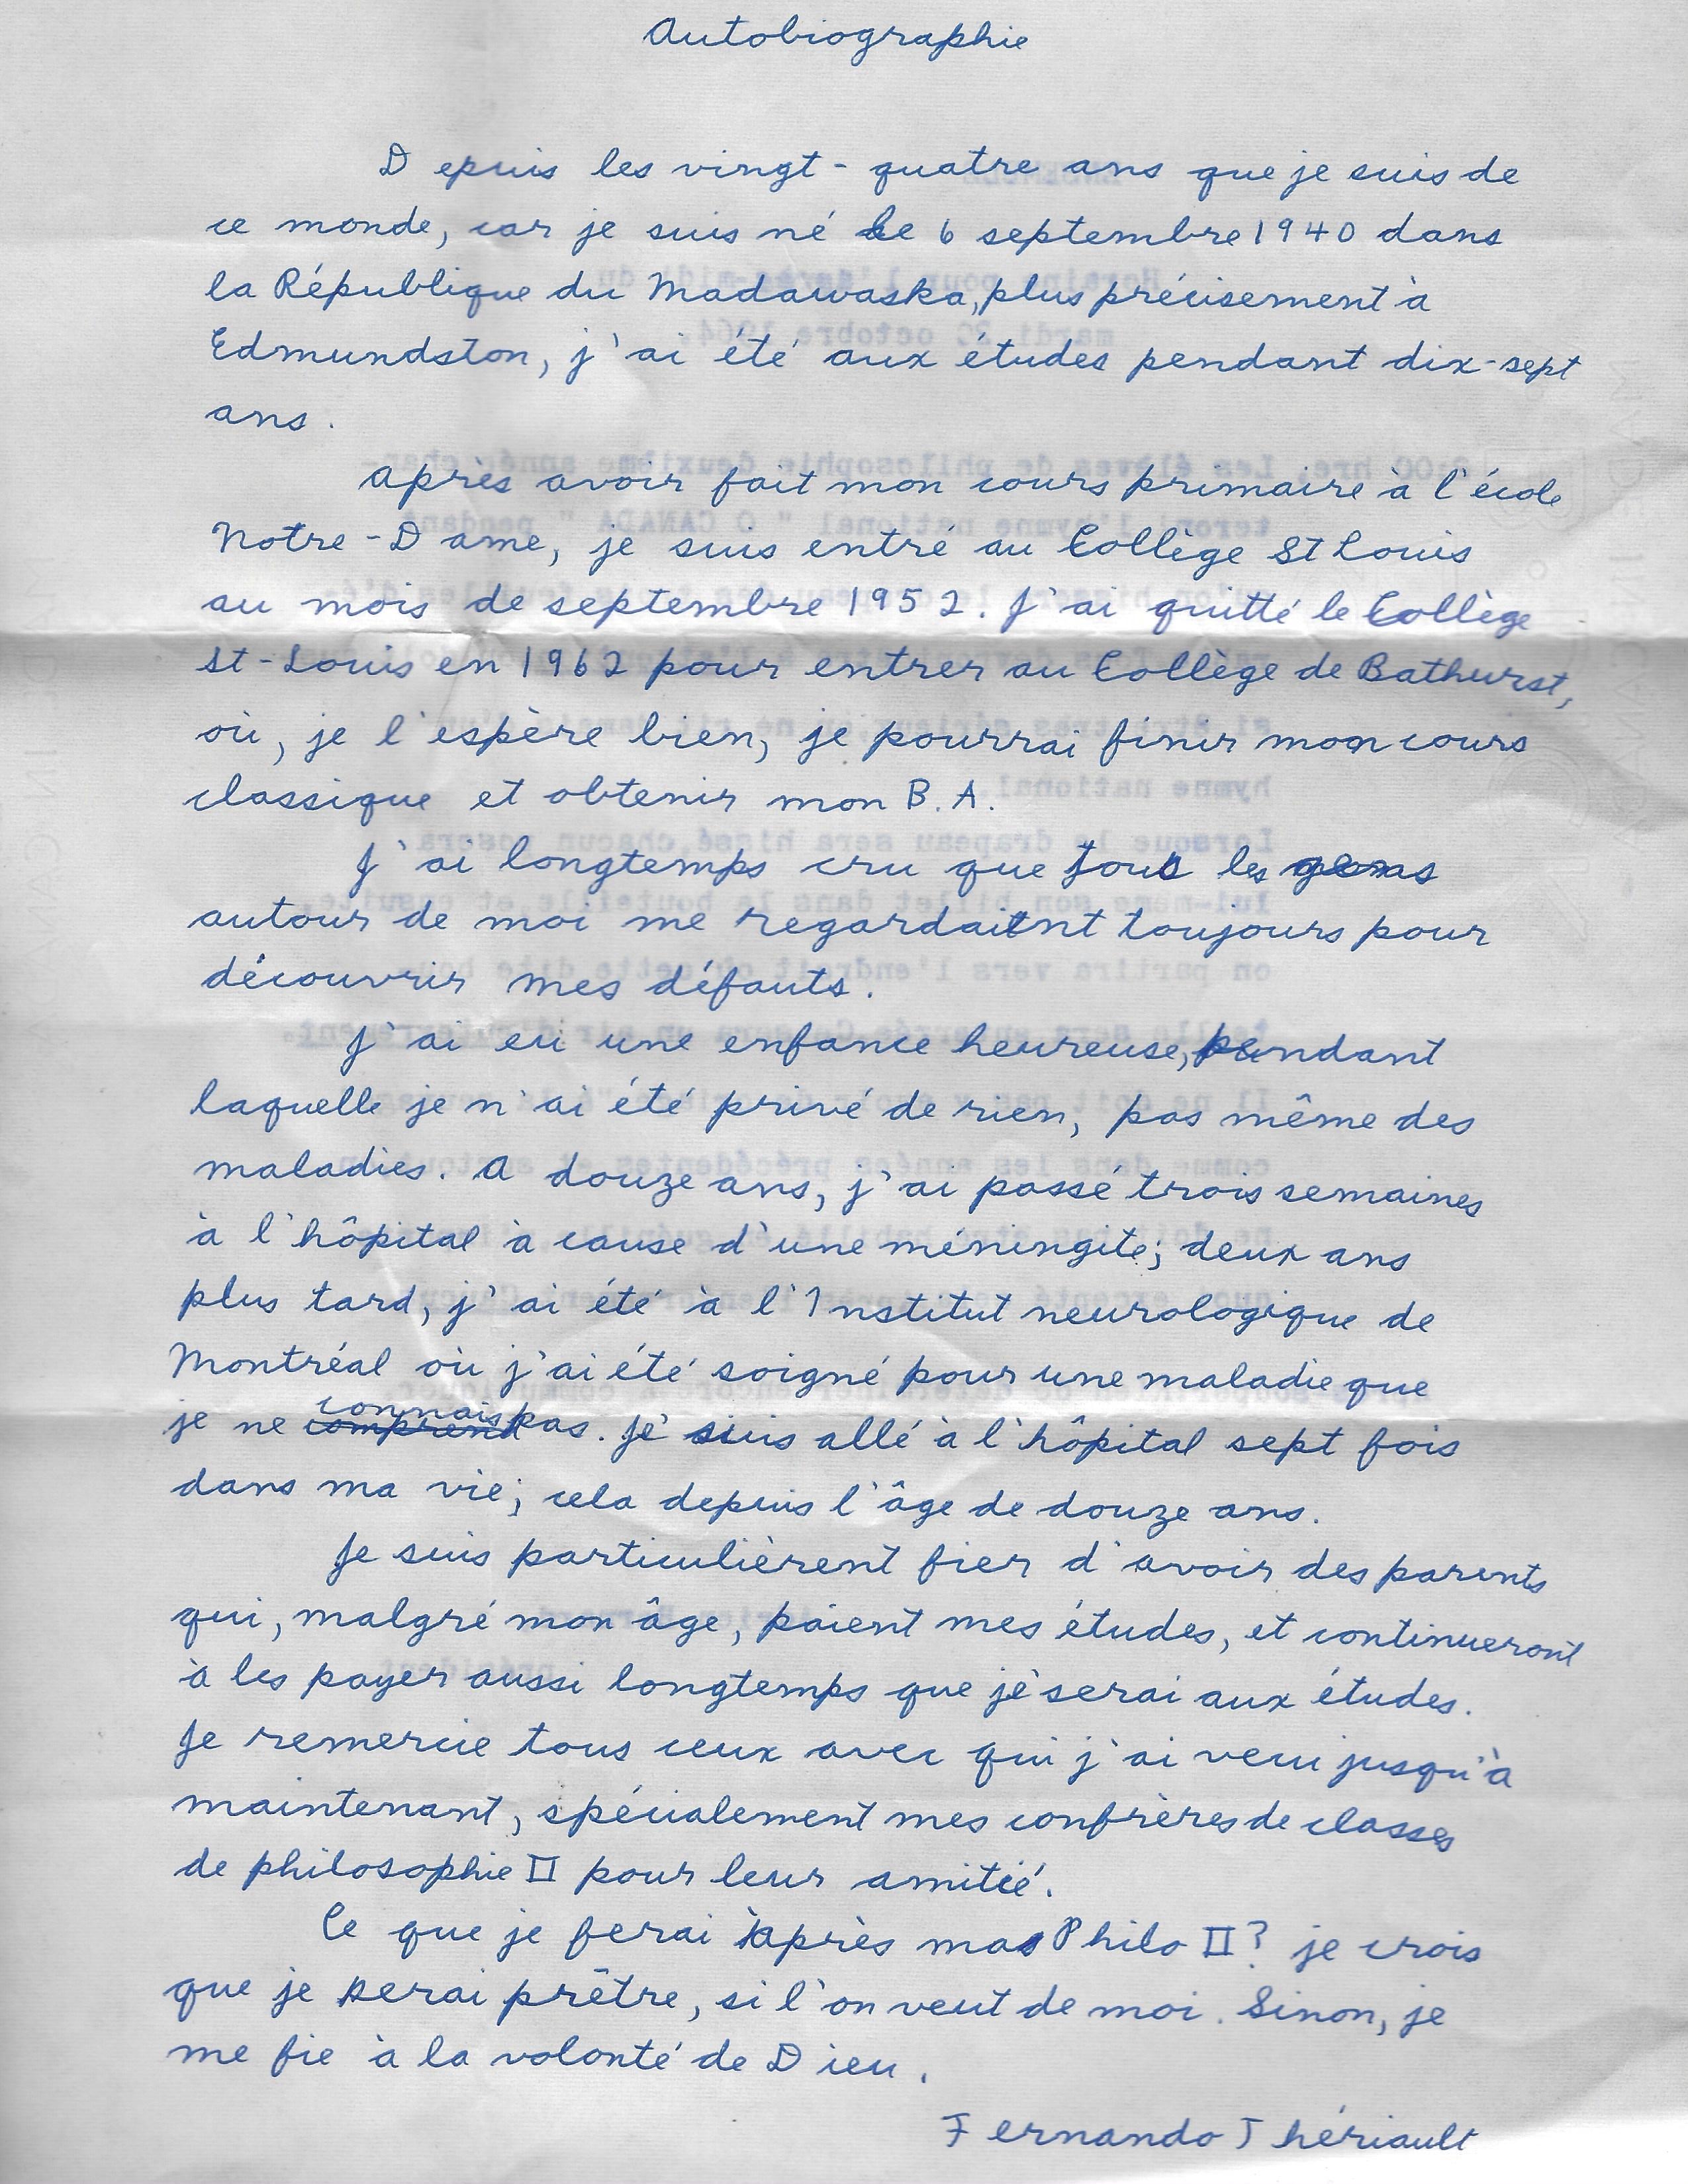 Autobiographie
Depuis les vingt-quatre ans que je suis de
ce monde, car je suis né le 6 septembre 1940 dans
la République du Madawaska, plus précisement à
Edmundston, j'ai été aux études pendant dix-sept
ans.
Après avoir fait mon cours primaire à l'école
Notre-Dame, je suis entré au Collège St Louis
au mois de septembre 1952. J'ai quitté le Collège
St-Louis en 1962 pour entrer au Collège de Bathurst,
où, je l'espère bien, je pourrai finir mon cours
classique et obtenir mon B.A.
J'ai longtemps cru que tous les gens
autour de moi me regardaient toujours pour
découvrir mes défauts.
J'ai eu une enfance heureuse, pendant
laquelle je n'ai été privé de rien, pas même des
maladies. A douze ans, j'ai passé trois semaines
à l'hôpital à cause d'une méningite; deux ans
plus tard, j'ai été à l'Institut neurologique de
Montréal où j'ai été soigné pour une maladie que
je ne comprend connais pas. Je suis allé à l'hôpital sept fois
dans ma vie; cela depuis l'âge de douze ans.
Je suis particulièrent fier d'avoir des parents
qui, malgré mon âge, paient mes études, et continueront
à les payer aussi longtemps que je serai aux études.
Je remercie tous ceux avec qui j'ai vecu jusqu'à
maintenant, spécialement mes confrères de classes
de philosophie II pour leur amitié.
Ce que je ferai après ma Philo II? je crois
que je serai prêtre, si l'on veut de moi. Sinon, je
me fie à la volonté de Dieu.
Fernando Thériault